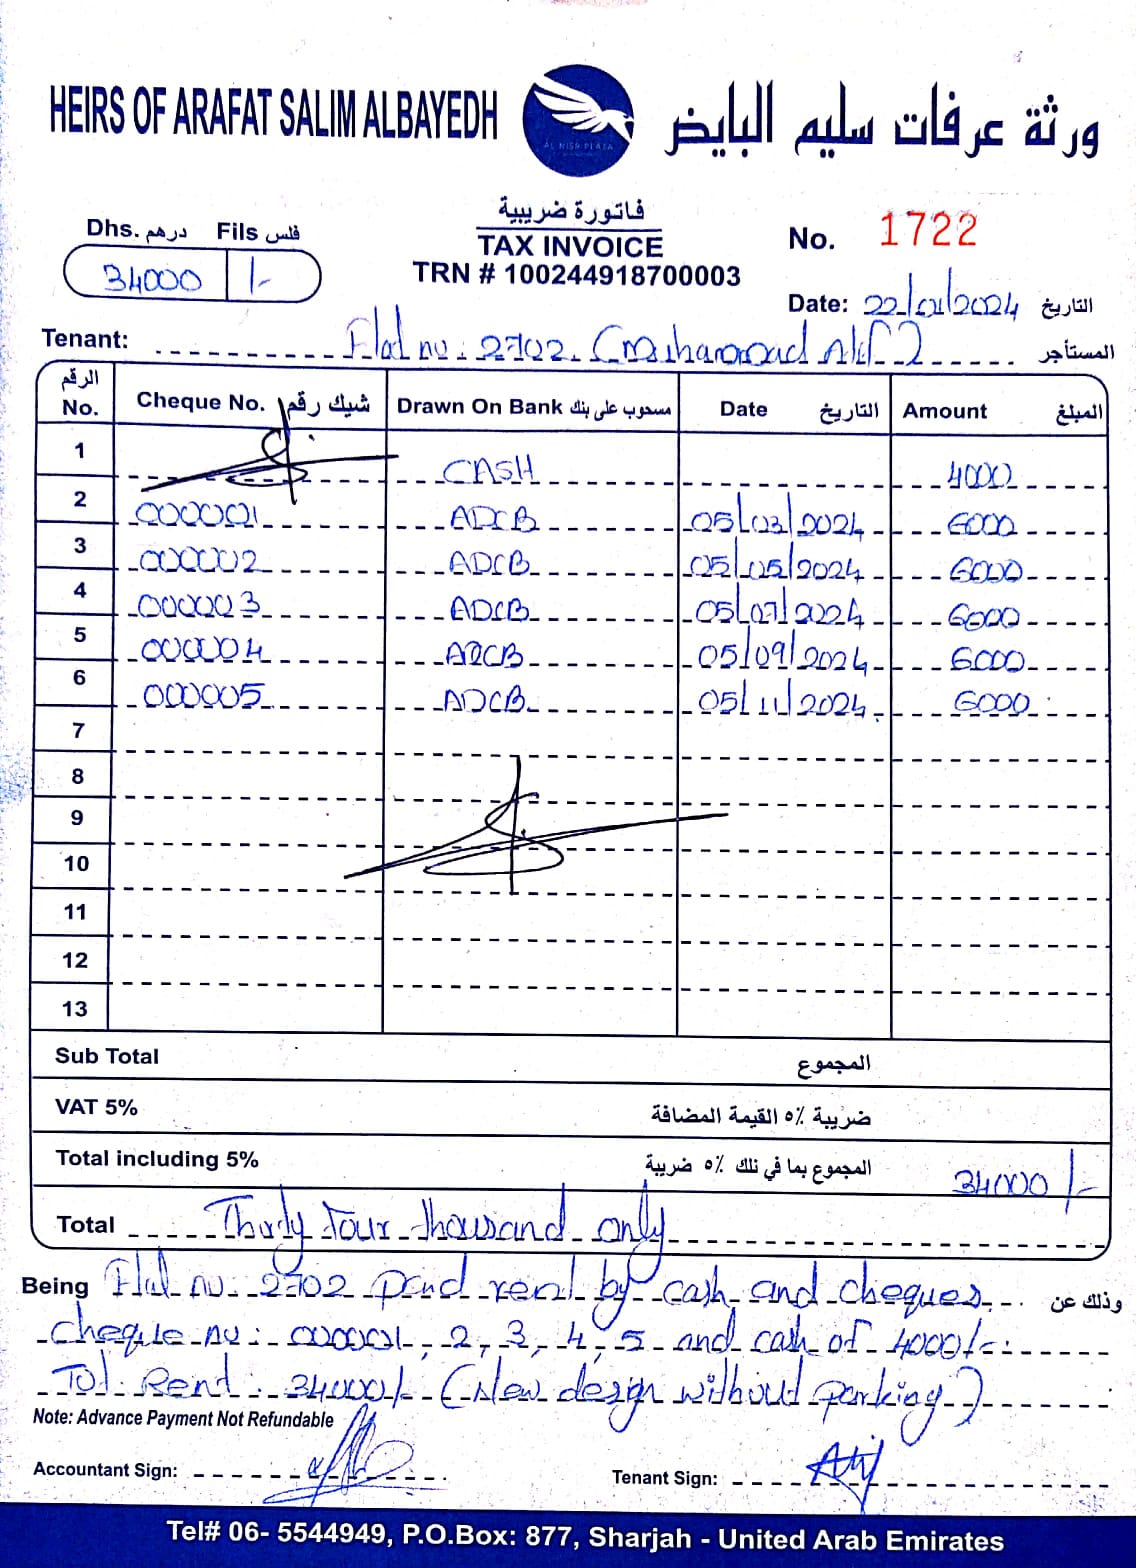 HEIRS OF ARAFAT SALIM ALBAYEDH
ورثة عرفات سليم البايض
AL NISR PLAZA
Dhs. درهم Fils فلس
34000 /-
فاتورة ضريبية
TAX INVOICE
TRN # 100244918700003
No. 1722
Date: 22/01/2024 التاريخ
Tenant: Flat no: 2702. (Mohammad Akif) المستأجر
الرقم No. Cheque No. شيك رقم Drawn On Bank مسحوب على بنك Date التاريخ Amount المبلغ
1 CASH 4000
2 000001 ADCB 05/03/2024 6000
3 000002 ADCB 05/05/2024 6000
4 000003 ADCB 05/07/2024 6000
5 000004 ADCB 05/09/2024 6000
6 000005 ADCB 05/11/2024 6000
7
8
9
10
11
12
13
Sub Total المجموع
VAT 5% ضريبة ٥٪ القيمة المضافة
Total including 5% المجموع بما في ذلك ٥٪ ضريبة 34000/-
Total Thirty Four thousand only
Being Flat no. 2702 paid rent by cash and cheques. وذلك عن
cheque no: 000001, 2, 3, 4, 5 and cash of 4000/-
Tot. Rent. 34000/- (New design without parking)
Note: Advance Payment Not Refundable
Accountant Sign:
Tenant Sign:
Tel# 06- 5544949, P.O.Box: 877, Sharjah - United Arab Emirates